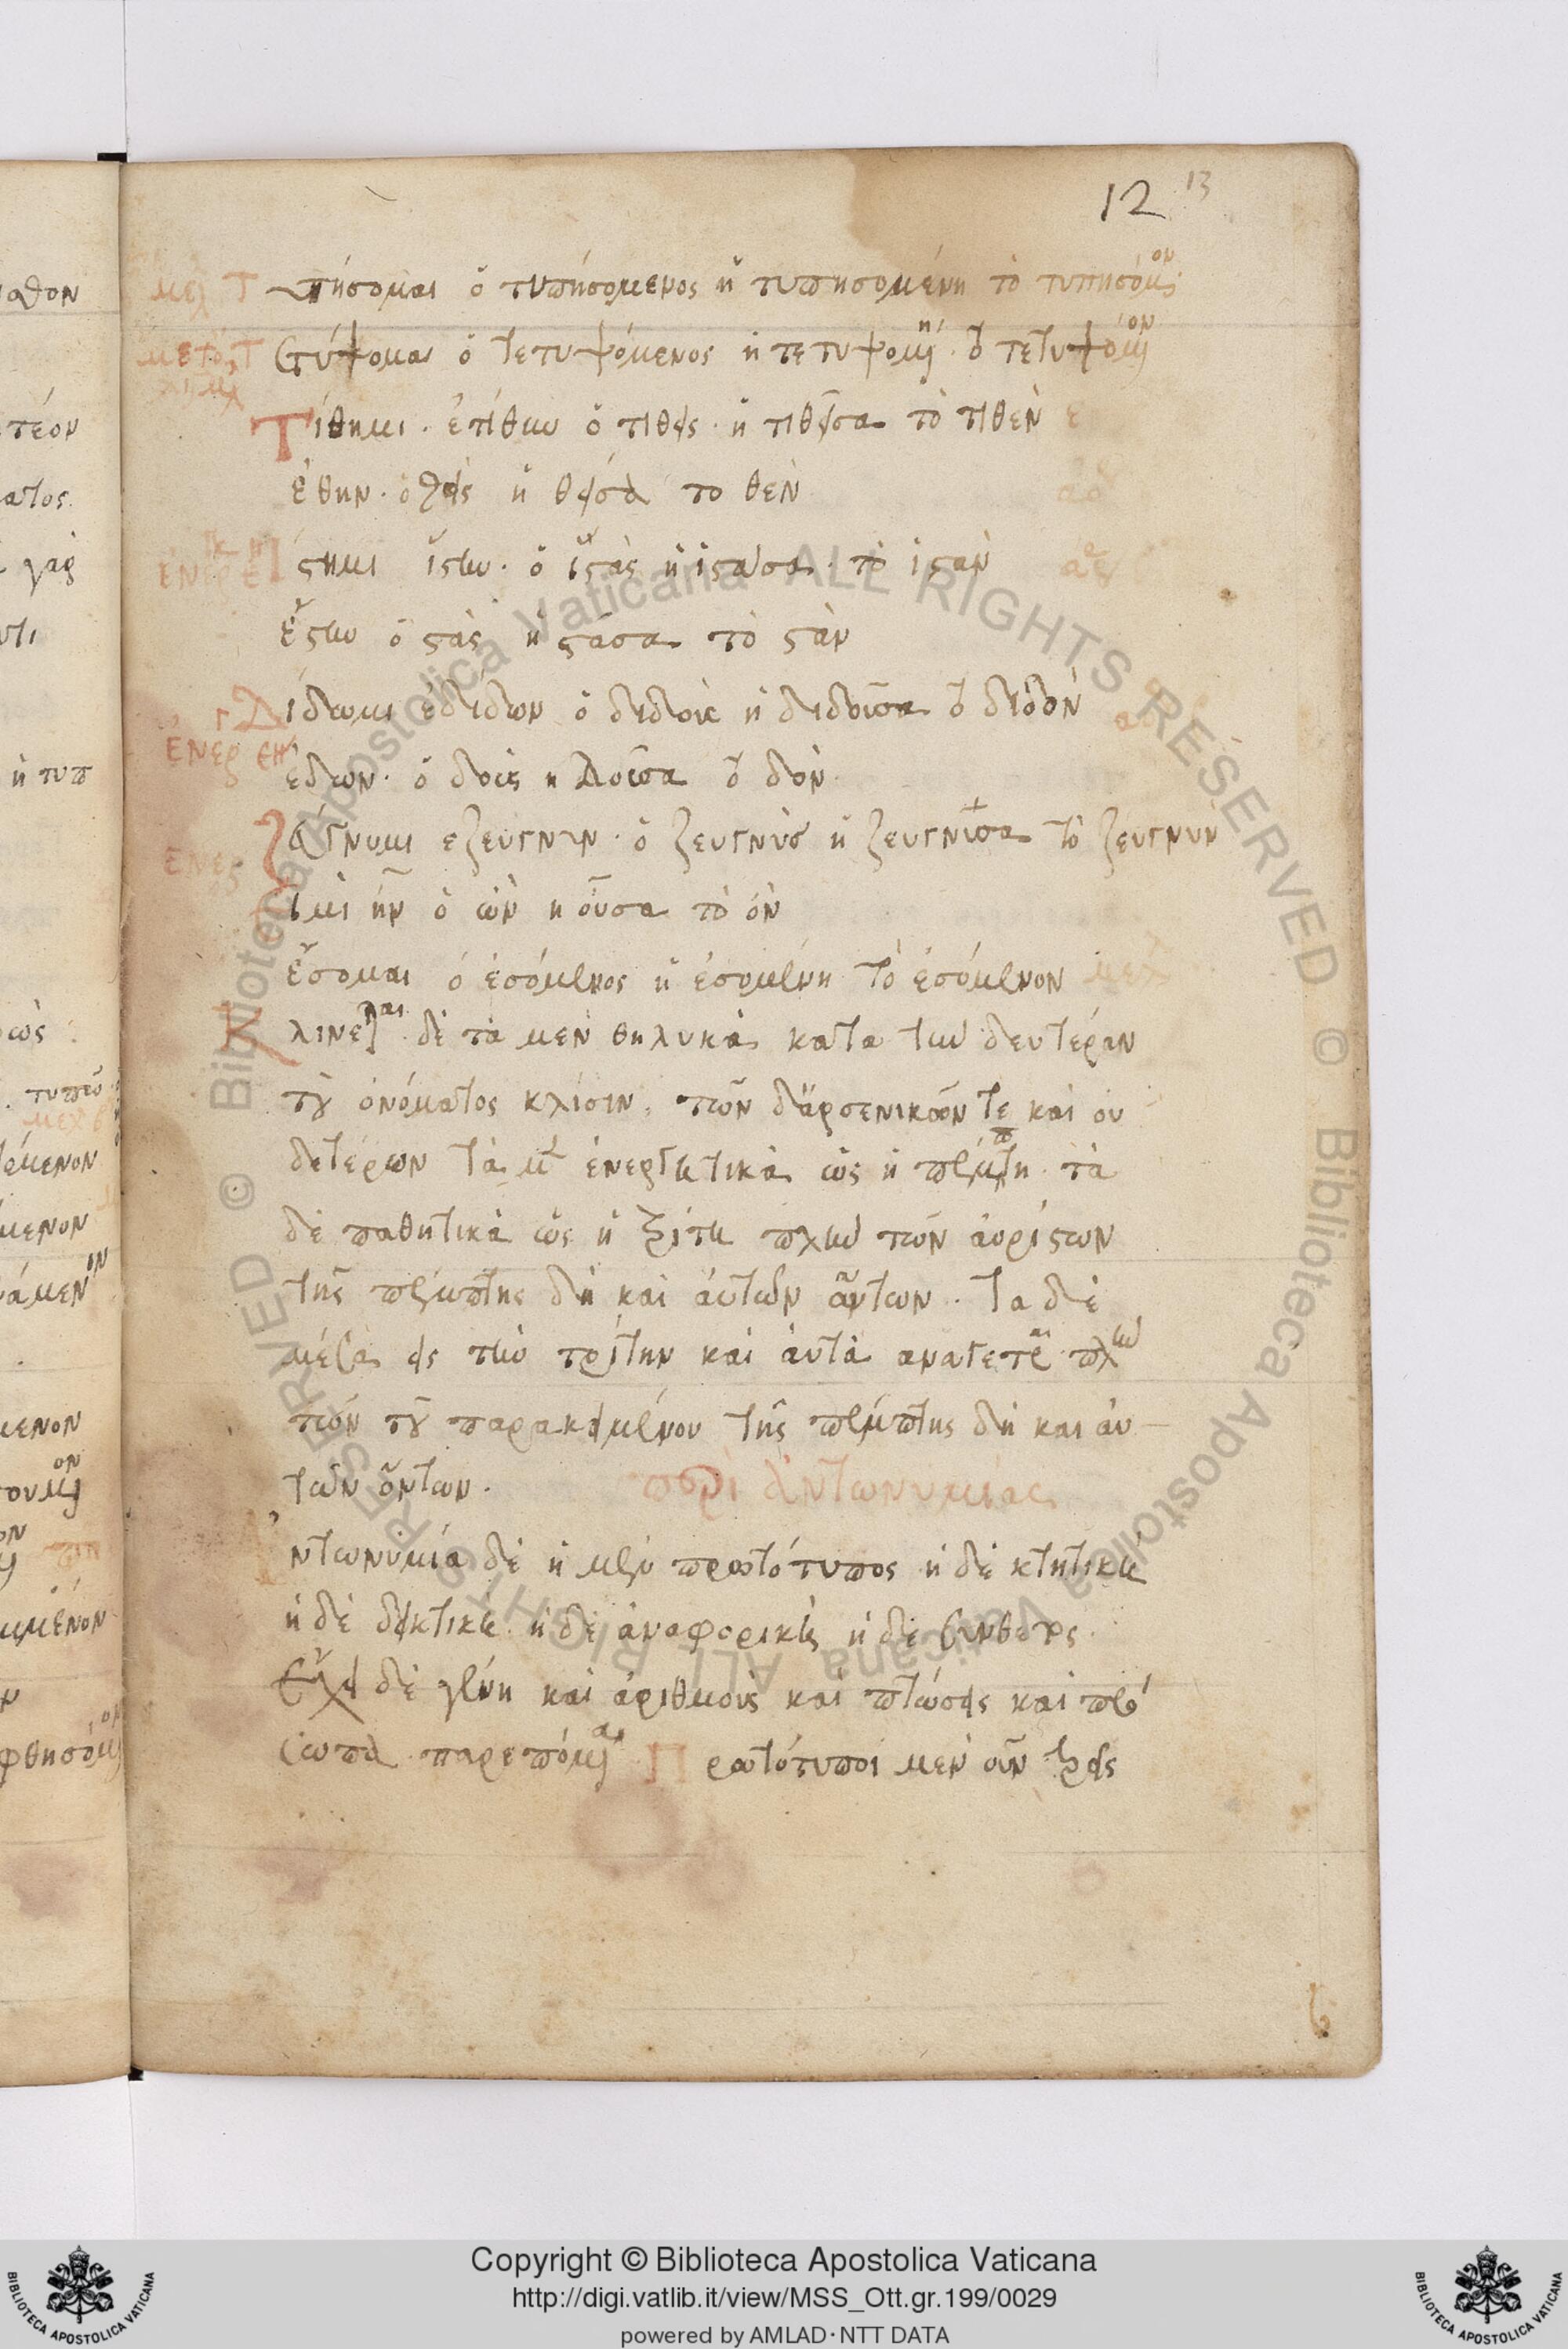 12 13
Τυπήσομαι ὁ τυπησόμενος ἡ τυπησομένη τὸ τυπησόμενον
Τετύψομαι ὁ τετυψόμενος ἡ τετυψομένη τὸ τετυψόμενον
Τίθημι · ἐτίθην ὁ τιθεὶς · ἡ τιθεῖσα τὸ τιθὲν
ἔθην · ὁ θεὶς ἡ θεῖσα το θὲν
Ἵστημι ἵστην · ὁ ἱστὰς ἡ ἱστᾶσα · τὸ ἱστὰν
ἔστην ὁ στὰς ἡ στᾶσα τὸ στὰν
Δίδωμι ἐδίδων ὁ διδοὺς ἡ διδοῦσα τὸ διδὸν
ἔδων · ὁ δοὺς ἡ δοῦσα τὸ δὸν
Ζεύγνυμι εζευγνυν · ὁ ζευγνὺς ἡ ζευγνῦσα τὸ ζευγνὺν
Εἰμὶ ἦν ὁ ὢν ἡ οὖσα τὸ ὂν
ἔσομαι ὁ ἐσόμενος ἡ ἐσομένη τὸ ἐσόμενον
Κλίνεται δὲ τὰ μὲν θηλυκὰ κατα την δευτέραν
τοῦ ὀνόματος κλίσιν · τῶν δ' ἀρσενικῶν τε καὶ οὐ
δετέρων τὰ μὲν ἐνεργητικὰ ὡς ἡ πέμπτη · τὰ
δὲ παθητικὰ ὡς ἡ τρίτη πλὴν τῶν ἀορίστων
τῆς πέμπτης δὴ καὶ αὐτῶν ὄντων · Τα δὲ
μέσα εἰς τὴν τρίτην καὶ αὐτὰ αναγεται πλὴν
τῶν τοῦ παρακειμένου τῆς πέμπτης δὴ και αὐ
τῶν ὄντων · περὶ ἀντωνυμίας
Ἀντωνυμία δὲ ἡ μὲν πρωτότυπος ἡ δὲ κτητικὴ
ἡ δὲ δεικτικὴ ἡ δὲ ἀναφορικὴ ἡ δὲ σύνθετος ·
Ἔχει δὲ γένη καὶ ἀριθμοὺς καὶ πτώσεις καὶ πρό
σωπα παρεπόμενα Πρωτότυποι μὲν οὖν τρεῖς
Copyright © Biblioteca Apostolica Vaticana
http://digi.vatlib.it/view/MSS_Ott.gr.199/0029
powered by AMLAD·NTT DATA